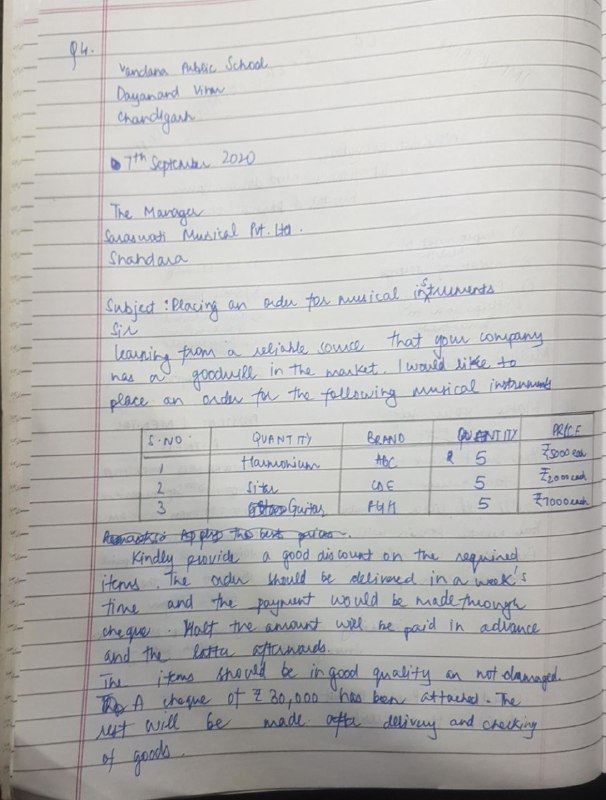 Q4.
Vandana Public School
Dayanand Vihar
Chandigarh
7th September 2020
The Manager
Saraswati Musical Pvt. Ltd.
Shahdara
Subject : Placing an order for musical instruments
Sir
Learning from a reliable source that your company
has a goodwill in the market. I would like to
place an order for the following musical instruments
S.NO. QUANTITY BRAND QUANTITY PRICE
1 Harmonium ABC 5 ₹5000 each
2 Sitar CDE 5 ₹2000 each
3 Guitar FGH 5 ₹7000 each
Kindly provide a good discount on the required
items. The order should be delivered in a week's
time and the payment would be made through
cheque. Half the amount will be paid in advance
and the latter afterwards.
The items should be in good quality an not damaged.
A cheque of ₹30,000 has been attached. The
rest will be made after delivery and checking
of goods.